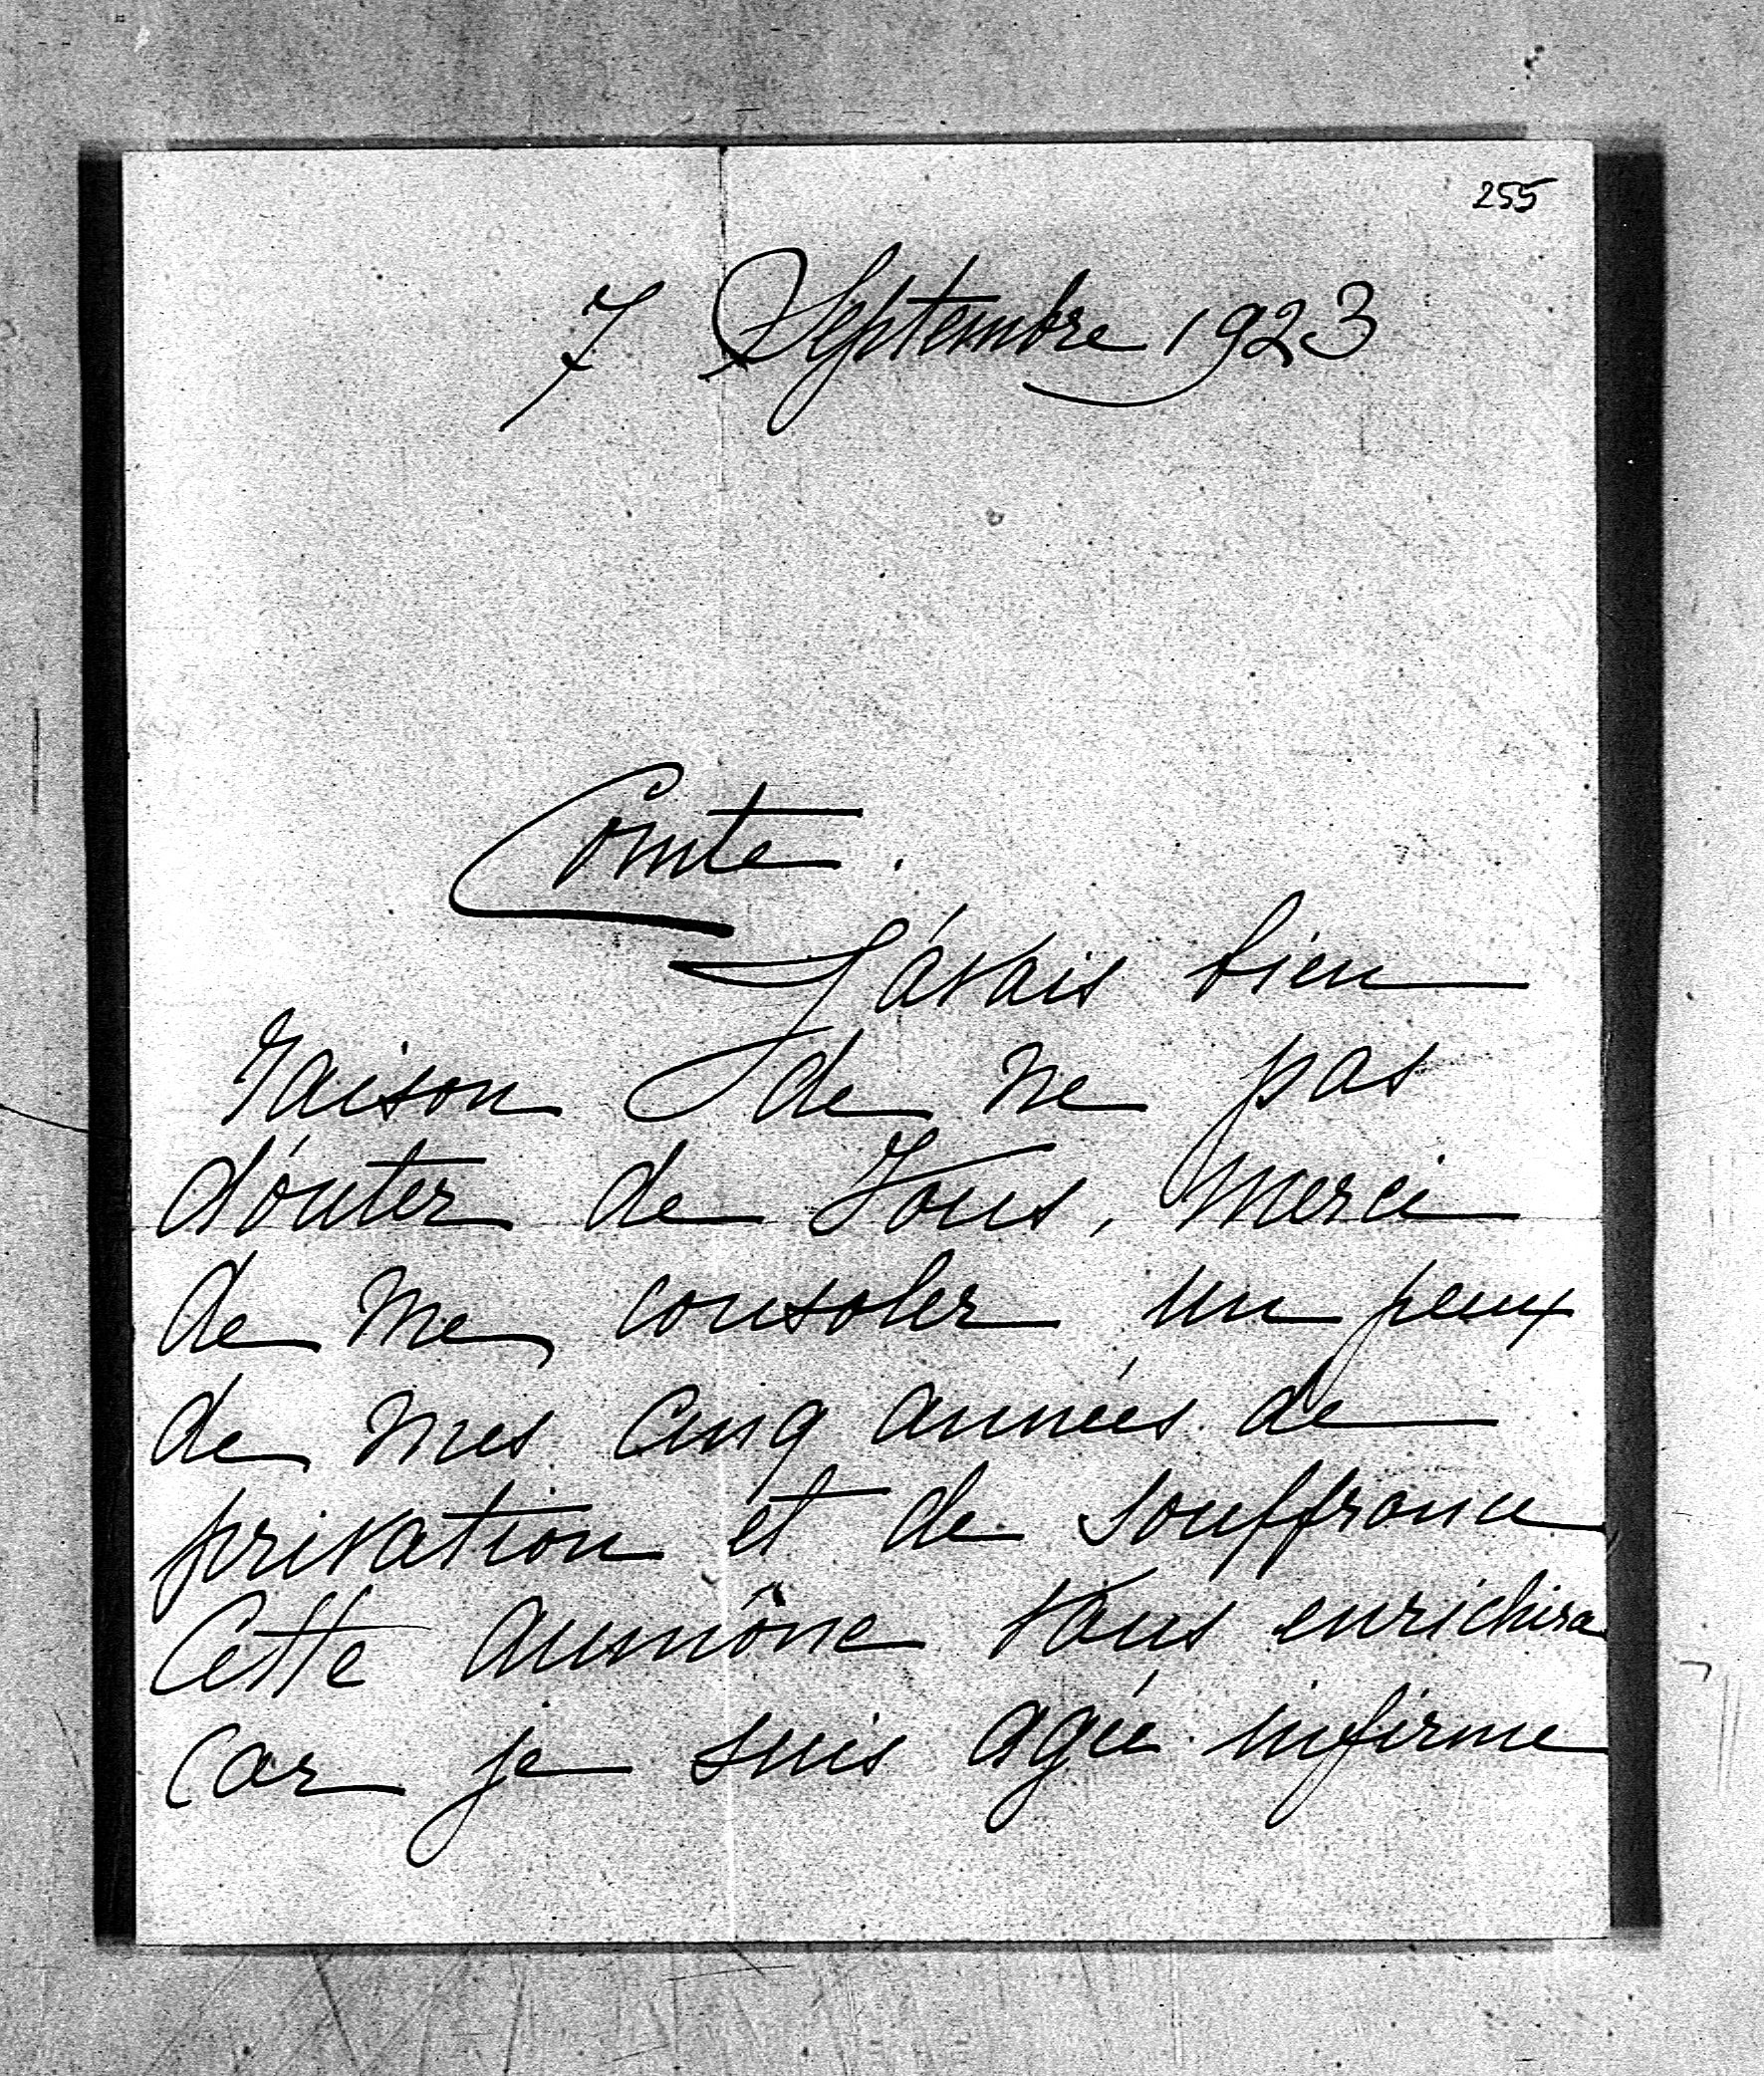 255
7 Septembre 1923
Comte.
J'avais bien
raison de ne pas
d'outer de Vous, merci
de me consoler un peux
de mes cinq années de
privation et de souffrance
Cette aumône vous enrichira
car je suis agée infirme